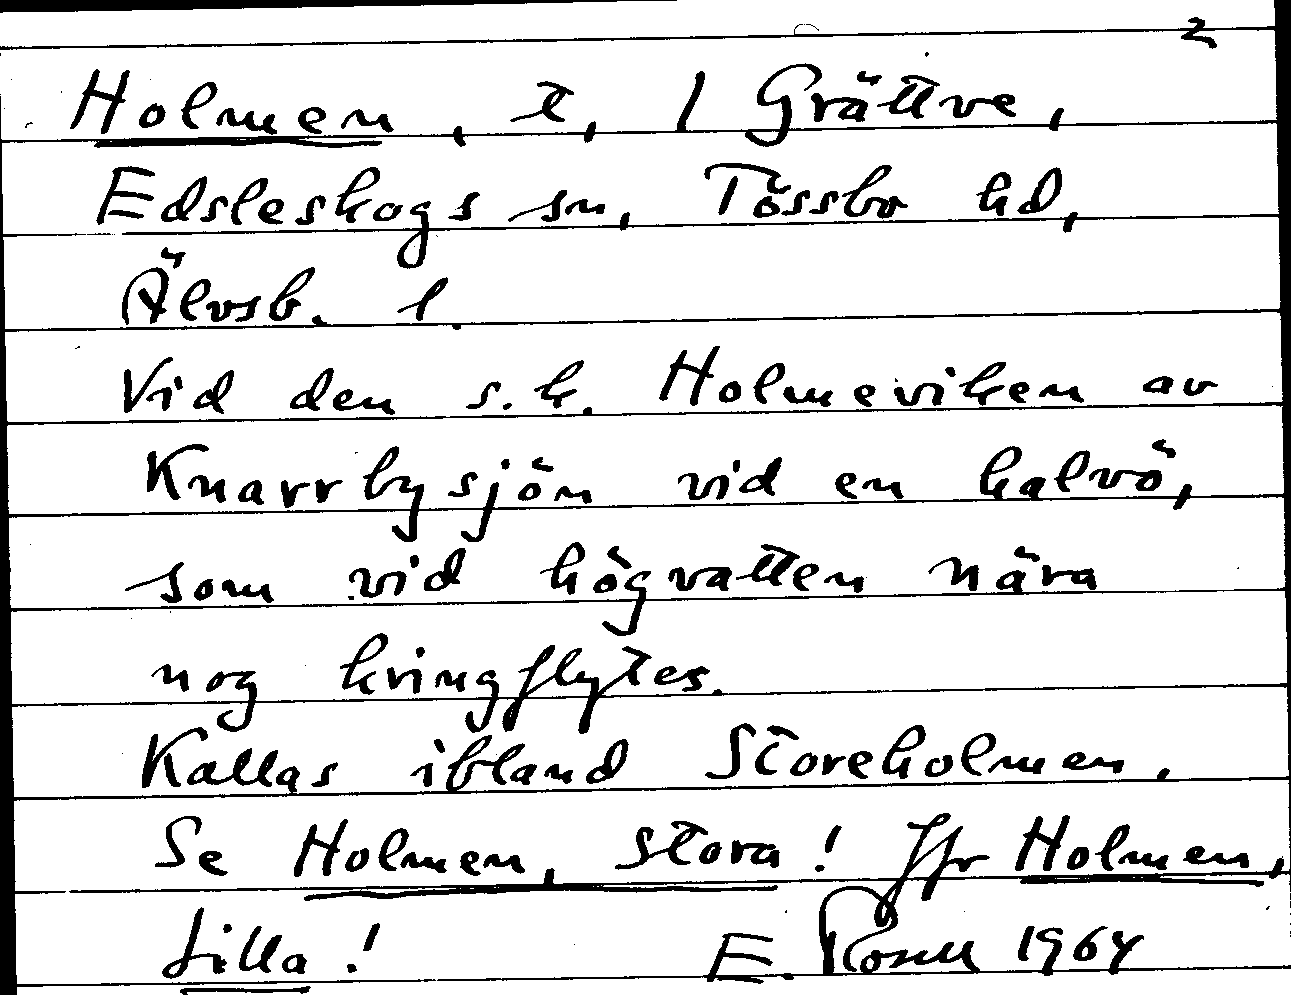 2
Holmen, t, 1 Grättve,
Edsleskogs sn, Tössbo hd,
Älvsb. l.
Vid den s.k. Holmeviken av
Knarrbysjön vid en halvö,
som vid högvatten nära
nog kringflytes.
Kallas ibland Storeholmen.
Se Holmen, stora! Jfr Holmen,
Lilla! E. Rosell 1964